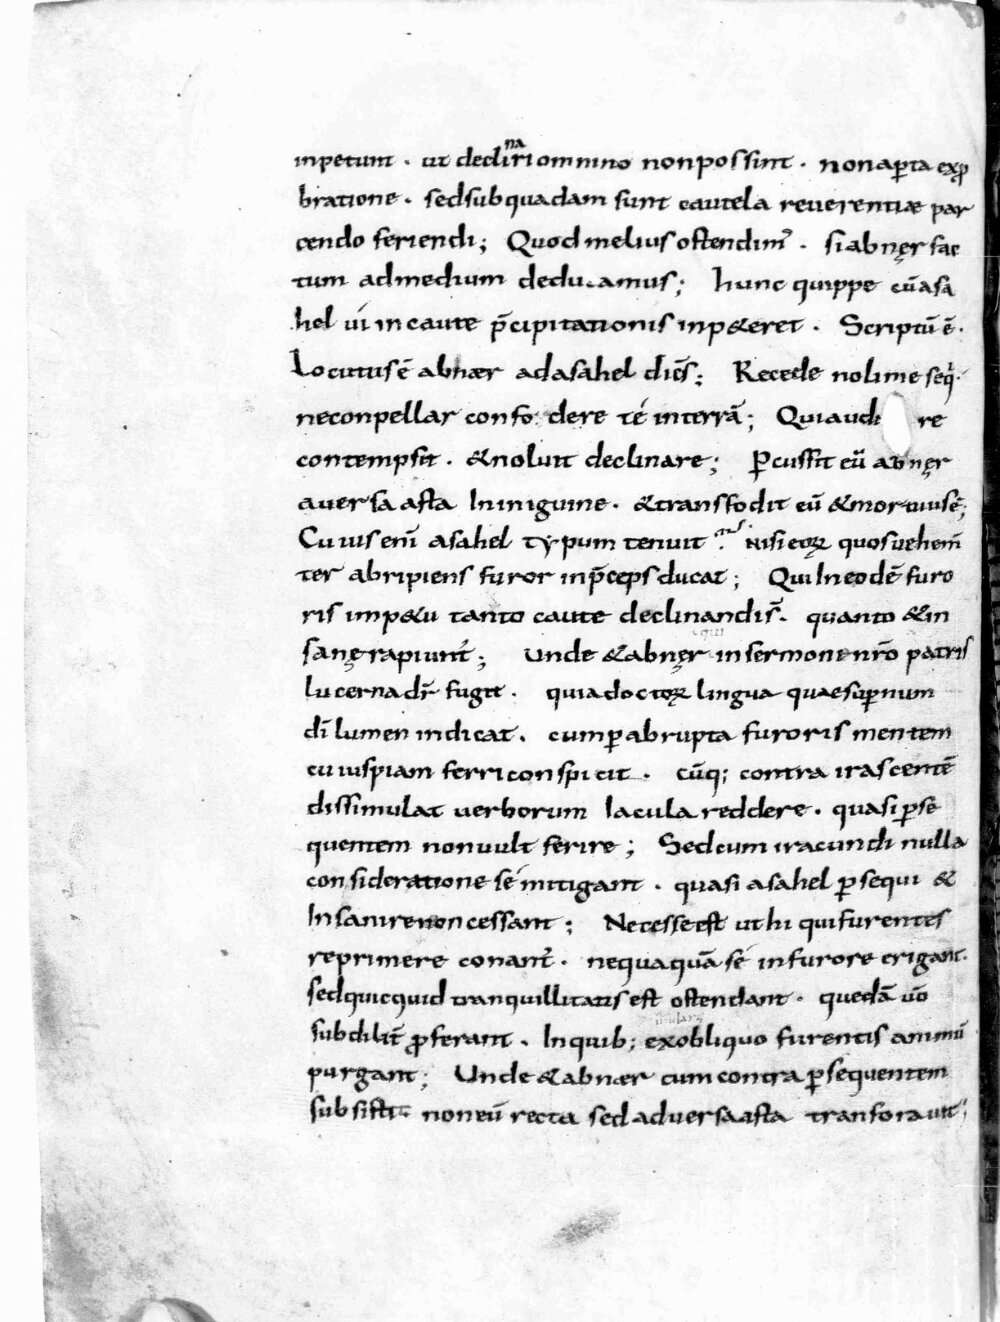 inpetunt · ut decliri omnino non possint · non aꝑta exꝓ
na
bratione · sed sub quadam sunt cautela reuerentiæ par
cendo feriendi; Quod melius ostendim᾽ · si abnęr fac
tum ad medium deducamus; hunc quippe cū asa
hel ui incaute p̄cipitationis inp&eret · Scriptū ē ·
Locutus ē abnær ad asahel dicēs; Recede noli me seq̇ ·
ne conpellar confo dere té in terrā; Qui audi re
contempsit · & noluit declinare; Ꝑcussit eū abnęr
auersa asta In inguine · & transfodit eū & mortuus ē;
Cuius eni̅ asahel typum tenuit · nisi eoꝝ quos uehem̄
ter abripiens furor in p̄ceps ducat; Qui In eodē furo
ris imp&u tanto caute declinandi s̄ · quanto & in
sanę rapiunt᾽; Unde & abnęr in sermone nr̄o patris
lucerna dr̄ fugit · quia doctoꝝ lingua quae suꝑnum
di̅ lumen indicat · cum ꝑ abrupta furoris mentem
cuiuspiam ferri conspicit · cūq; contra irascentē
dissimulat uerborum Iacula reddere · quasi ꝑse
quentem non uult ferire; Sed cum iracundi nulla
consideratione sé mitigant · quasi asahel ꝑsequi &
Insanire non cessant; Necesse est ut hi qui furentes
reprimere conant᾽ · nequaquā sé in furore erigant ·
sed quicquid tranquillitatis est ostendant · quedā u̅o
subdilit᾽ ꝓferant · In quib; ex obliquo furentis animū
purgant; Unde & abnær cum contra ꝑsequentem
subsisti non eū recta sed aduersa asta tranforauit;